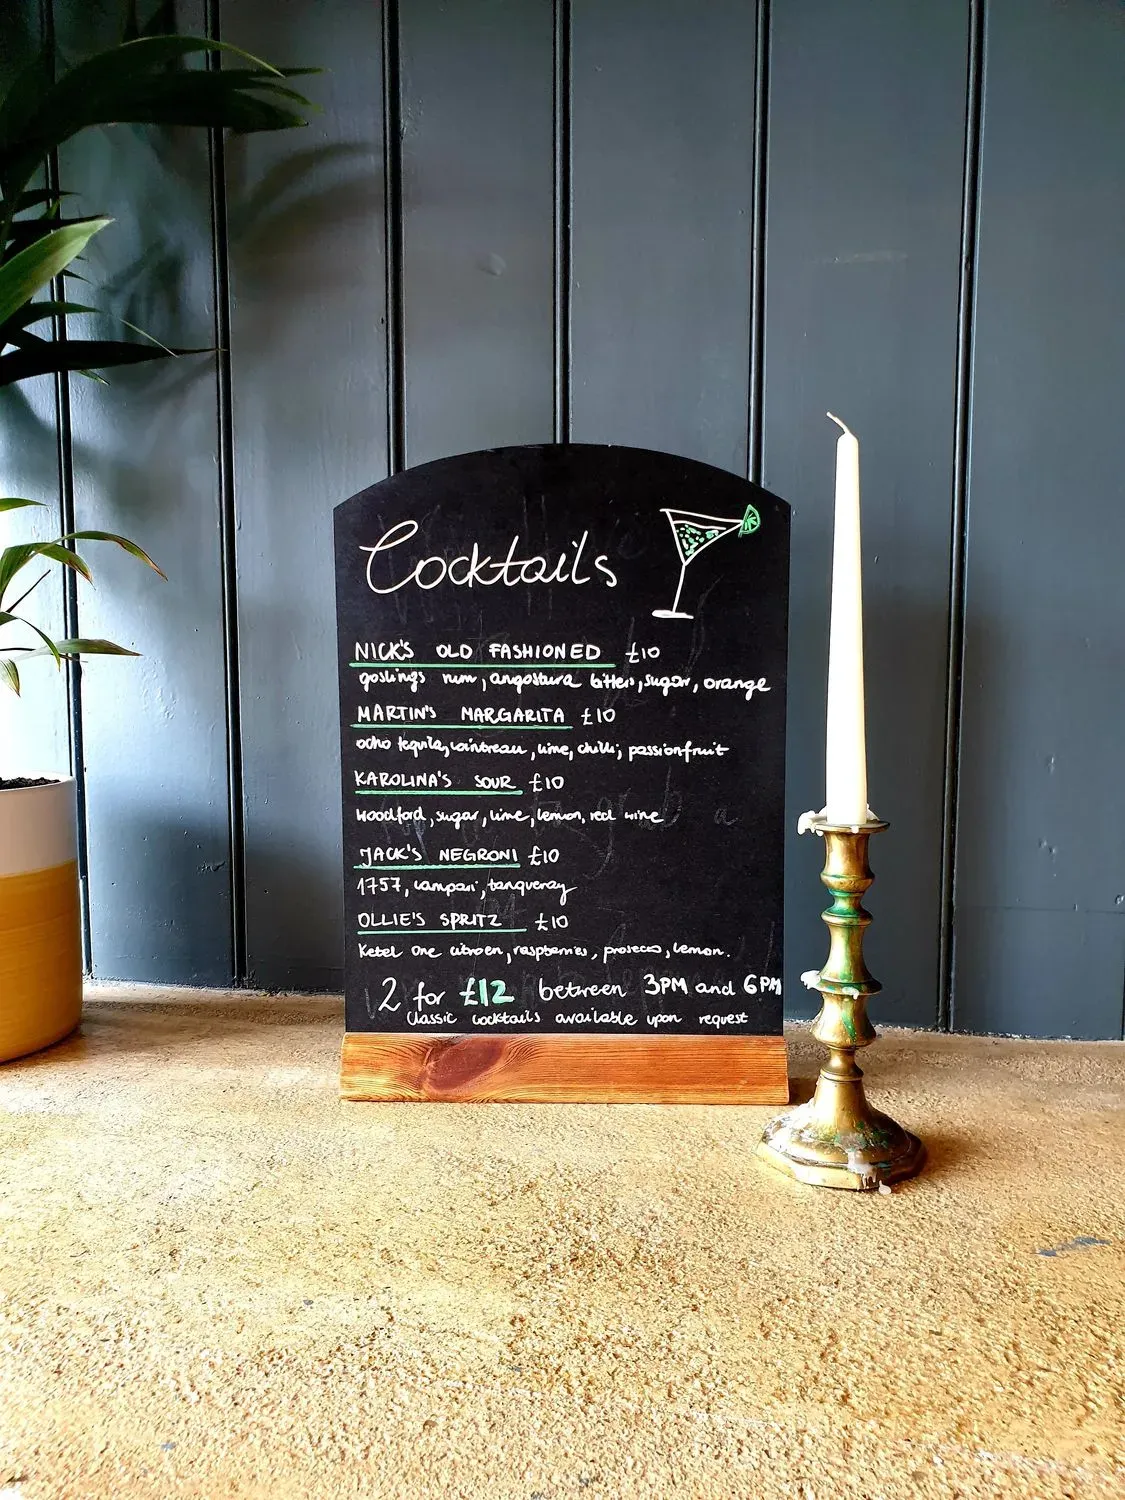 Cocktails
NICK'S OLD FASHIONED £10
goslings rum, angostura bitters, sugar, orange
MARTIN'S MARGARITA £10
ocho tequila, cointreau, lime, chilli, passionfruit
KAROLINA'S SOUR £10
woodford, sugar, lime, lemon, red wine
JACK'S NEGRONI £10
1757, campari, tanqueray
OLLIE'S SPRITZ £10
Ketel One citroen, raspberries, prosecco, lemon.
2 for £12 between 3PM and 6PM
Classic cocktails available upon request